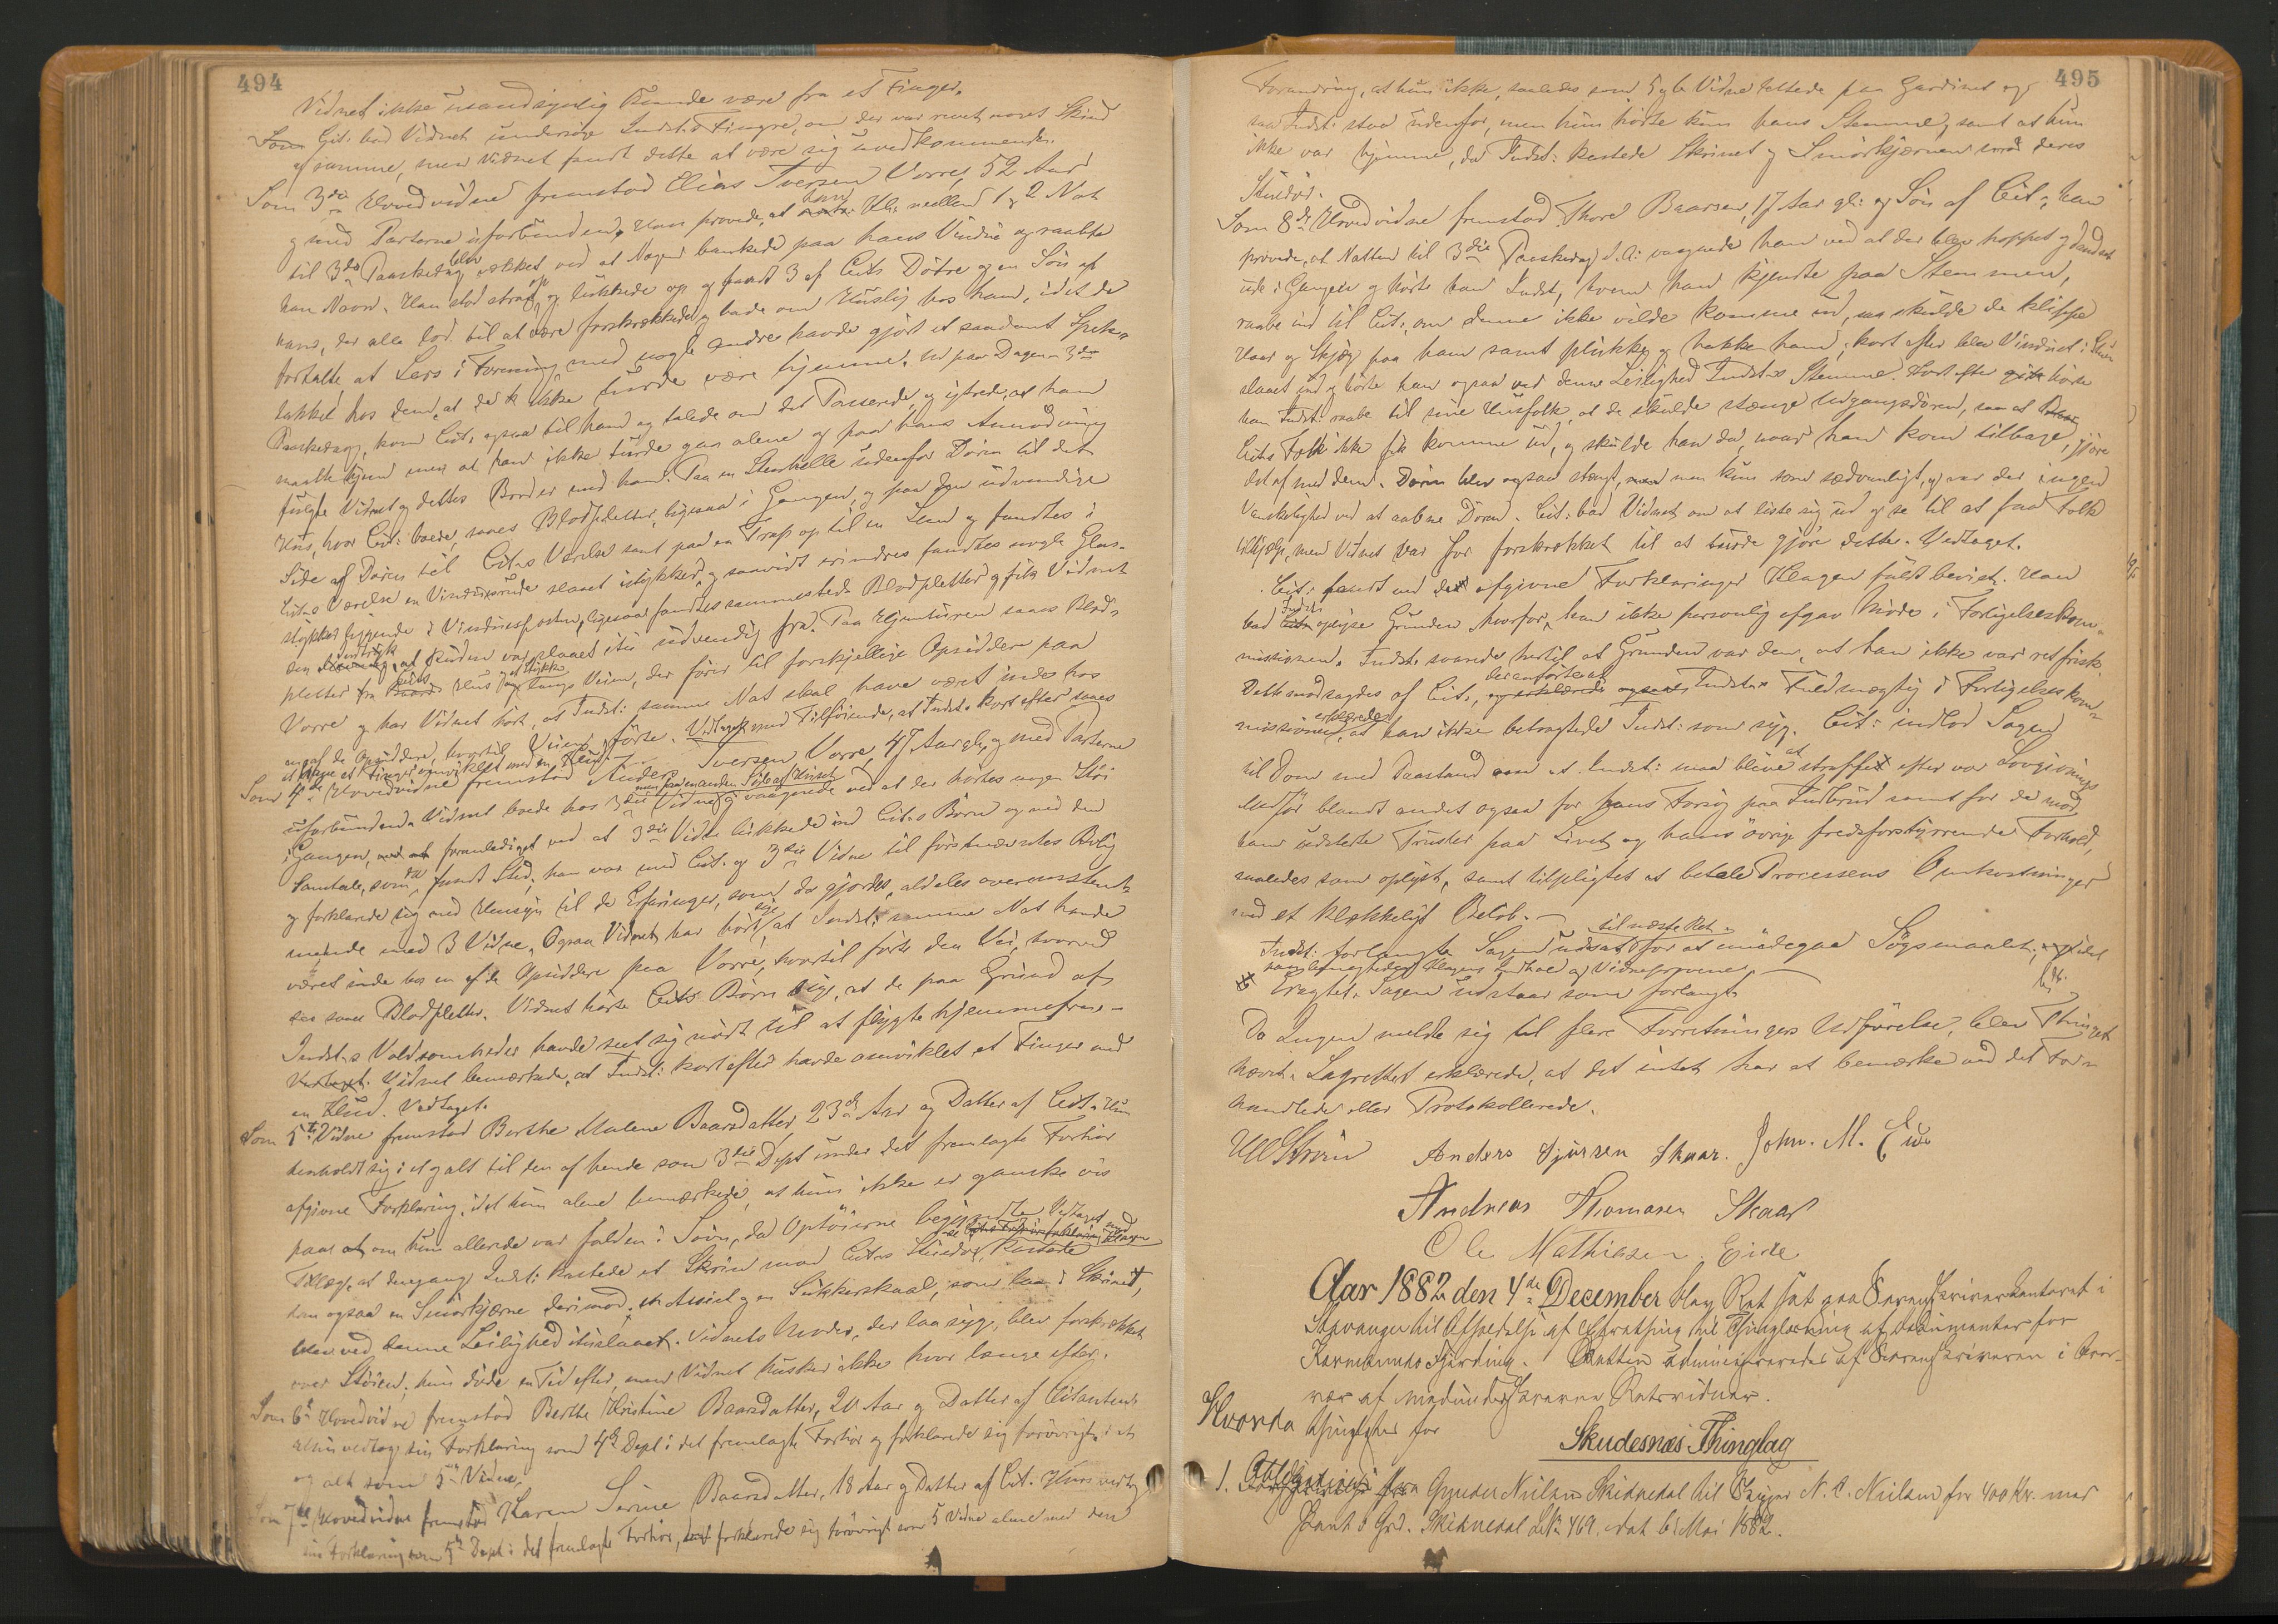 494
Vidnet ikke usandsynlig kunde være fra et Finger.
Cit: bad Vidnet undersöge Indst:s Fingre, om der var revet noget Skind
af samme, men Vidnet fandt dette at være sig uvedkommende.
Som 3die Hovedvidne fremstod Elias Iversen Vorre, 52 Aar
og med Parterne uforbunden. Han provede, at han Kl: mellem 1 og 2 Nat
til 3die Paaskedag blev vækket ved at Nogen bankede paa hans Vindu og raabte
hans Navn. Han stod strax op og lukkede op og fandt 3 af Cits Dötre og en Sön af
ham, der alle lod til at være forskrækkede og bade om Huusly hos ham, idet de
fortalte at Lars i Forening med nogle Andre havde gjort et saadant Spek-
takkel hos dem, at de ikke turde være hjemme. Ud paa Dagen 3die
Paaskedag, kom Cit: ogsaa til ham og talede om det Passerede, og ytrede, at han
maatte hjem men at han ikke turde gaa alene og paa hans Anmodning
fulgte Vidnet og dettes Broder med ham. Paa en Steenhelle udenfor Dören til det
Huus, hvor Cit: boede, saaes Blodpletter, ligesaa i Gangen, og paa den udvendige
Side af Dören til Cit:s Værelse samt paa en Trap op til en Lem og fandtes i
Cit:s Værelse en Vinduesrude slaaet istykker, og saavidt erindres fandtes nogle Glas-
stykker liggende i Vinduesposten, ligesaa fandtes sammesteds Blodpletter og fik Vidnet
den indtryk at Ruden var slaaet itu udvendig fra. Paa Hjemturen saaes Blod-
pletter fra Cits Hus og et Stykke langs Veien, der förer til forskjellige Opsiddere paa
Vorre og har Vidnet hört, at Indst: samme Nat skal have været inde hos
en af de Opsiddere, hvortil Veien förte. Vedtaget med Tilföiende, at Indst: kort efter saaes
at have et Finger omviklet med en Klud.
Som 4de Hovedvidne fremstod Anders Iversen Vorre, 47 Aar gl. og med Parterne
uforbunden. Vidnet boede hos 3die Vidne men paa en anden Side af Huset og vaagnede ved at der hörtes nogen Stöi
i Gangen, foranlediget ved at 3die Vidne lukkede ind Cit:s Börn og ved den
Samtale, som da fandt Sted; han var med Cit: og 3die Vidne til förstnævntes Bolig
og forklarede sig med Hensyn til de Erfaringer, som da gjordes, aldeles overensstem-
mende med 3 Vidne. Ogsaa Vidnet har hört sige at Indst: samme Nat havde
været inde hos en af de Opsiddere paa Vorre, hvortil förte den Vei, hvorved
saaes Blodpletter. Vidnet hörte Cits Börn sige, at de paa Grund af
Indst:s Voldsomheder havde seet sig nödt til at flygte hjemmefra.
Vedtaget. Vidnet bemærkede, at Indst: kort efter havde omviklet et Finger med
en Klud. Vedtaget.
Som 5te Vidne fremstod Berthe Malene Baarsdatter 23 Aar og Datter af Cit: Hun
henholdt sig i et og alt til den af hende som 3die Dept under det fremlagte Forhör
afgivne Forklaring, idet hun alene bemærkede, at hun ikke er ganske vis
paa om hun allerede var falden i Sövn, da Optöierne begyndte. Vedtaget med
Tillæg, at dengang Indst: kastede et Skrin mod Cit:s Stuedör, kastede
han ogsaa en Smörkjærne derimod. En Assiet og en Sukkerskaal, som laa i Skrinet,
blev ved denne Leilighed ituslaaet. Vidnets Moder, der laa syg, blev forskrækket
over Stöien; hun döde en Tid efter, men Vidnet husker ikke hvor længe efter.
Som 6te Hovedvidne fremstod Berthe Kristine Baarsdatter, 20 Aar og Datter af Citanten.
Hun vedtog sin Forklaring som 4de Dept i det fremlagte Forhör og forklarede sig forövrigt i et
og alt som 5te Vidne.
Som 7de Hovedvidne fremstod Karen Serine Baarsdatter, 18 Aar og Datter af Cit: Hun vedtog
sin Forklaring som 5te Dept i det fremlagte Forhör, forklarede sig forövrigt som 5 Vidne alene med den
495
Forandring, at hun ikke, saaledes som 5 og 6 Vidne löftede paa Gardinet og
saa Indst: stod udenfor, men hun hörte kun hans Stemme, samt at hun
ikke var hjemme, da Indst: kastede Skrinet og Smörkjærnen mod deres
Stuedör.
Som 8de Hovedvidne fremstod Thore Baarsen, 17 Aar gl: og Sön af Cit:; han
provede, at Natten til 3die Paaskedag d. A: vaagnede han ved at der blev hoppet og dandset
ude i Gangen og hörte han Indst:, hvem han kjendte paa Stemmen,
raabe ind til Cit:, om denne ikke vilde komme ud, saa skulde de klippe
Haar og Skjæg paa ham samt plukke og hakke ham; kort efter blev Vinduet i Stuen
slaaet ind og hörte han ogsaa ved denne Leilighed Indst:s Stemme. Kort efter hörte
han Indst: raabe til sine Husfolk, at de skulde stænge Udgangsdören, saa at
Cits Folk ikke fik komme ud, og skulde han da, naar han kom tilbage, gjöre
det af med dem. Dören blev ogsaa stængt, men kun som sædvanligt, og var der ingen
Vanskelighed ved at aabne Dören. Cit: bad Vidnet om at liste sig ud og se til at faa Folk
tilhjælp, men Vidnet var for forskrækket til at turde gjöre dette. Vedtaget.
Cit: fandt ved de afgivne Forklaringer Klagen fuldt bevist. Han
bad Indst: oplyse Grunden hvorfor han ikke personlig afgav Möde i Forligelseskom-
missionen. Indst: svarede hertil at Grunden var den, at han ikke var retfrisk.
Dette modsagdes af Cit:, der anförte at Indst:s Fuldmægtig i Forligelseskom-
missionen erklærede, at han ikke betragtede Indst: som syg. Cit: indlod Sagen
til Dom med Paastand at Indst: maa blive at straffe efter vor Lovgivnings
Medför blandt andet ogsaa for hans Forsög paa Indbrud samt for de mod
ham udstedte Trusler paa Livet og hans övrige fredsforstyrrende Forhold,
saaledes som oplyst, samt tilpligtet at betale Processens Omkostninger
med et klækkeligt Belöb.
Indst: forlangte Sagen udsat til næste Ret for at imödegaa Sögsmaalet,
Klagens Indhold og Vidneprovene.
Eragtet: Sagen udstaar som forlangt.
Da Ingen meldte sig til flere Forretningers Udförelse, blev Thinget
hævet. Lagrettet erklærede, at det intet har at bemærke ved det For-
handlede eller Protokollerede.
Anders Sjursen Skaar. John. M. Eide
Andreas Thomasen Skaar
Ole Mathiasen Eide
Aar 1882 den 4de December blev Ret sat paa Sorenskriverkontoret i
Stavanger til Afholdelse af Extrathing til Thinglæsning af Dokumenter for
Karmsunds Fjerding. Retten administreredes af Sorenskriveren i Over-
vær af medundertegnede Retsvidner.
Hvorda thinglyst for
Skudesnæs Thinglag
1. Obligation fra Gunder Nielsen Skidnedal til Skipper N. C. Nielsen for 400 Kr. med
Pant i Grd. Skidnedal LNr 469. dat 6 Mai 1882.